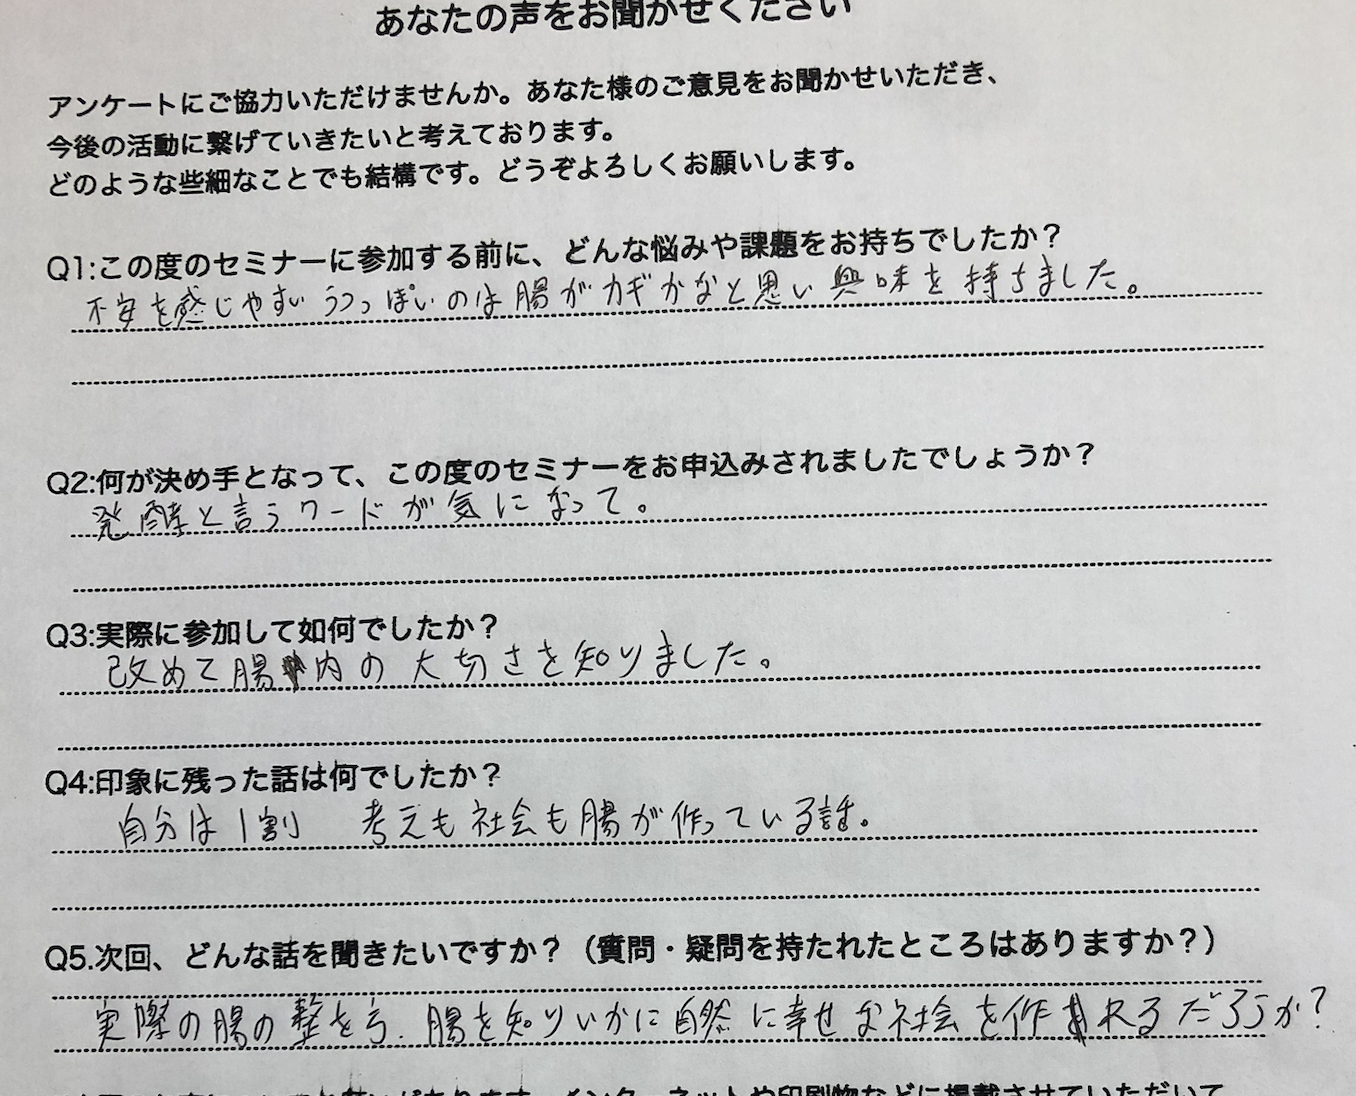 あなたの声をお聞かせください
アンケートにご協力いただけませんか。あなた様のご意見をお聞かせいただき、
今後の活動に繋げていきたいと考えております。
どのような些細なことでも結構です。どうぞよろしくお願いします。
Q1:この度のセミナーに参加する前に、どんな悩みや課題をお持ちでしたか？
不安を感じやすい うつっぽいのは腸がカギかなと思い興味を持ちました。
Q2:何が決め手となって、この度のセミナーをお申込みされましたでしょうか？
発酵と言うワードが気になって。
Q3:実際に参加して如何でしたか？
改めて腸内の大切さを知りました。
Q4:印象に残った話は何でしたか？
自分は1割 考えも社会も腸が作っている話。
Q5.次回、どんな話を聞きたいですか？（質問・疑問を持たれたところはありますか？）
実際の腸の整え方. 腸を知りいかに自然に幸せな社会を作れるだろうか？
インターネットや印刷物などに掲載させていただいて